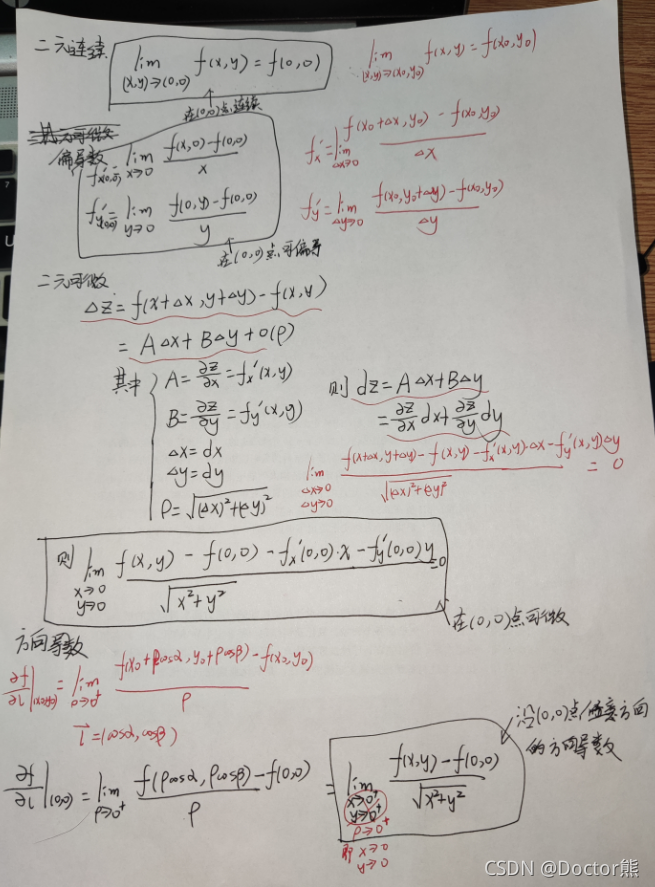 二元连续 lim (x,y)→(0,0) f(x,y)=f(0,0)
lim (x,y)→(x0,y0) f(x,y)=f(x0,y0)
在(0,0)点连续
偏导数
f'x(0,0)= lim x→0 f(x,0)-f(0,0) / x
f'x= lim Δx→0 f(x0+Δx,y0)-f(x0,y0) / Δx
f'y(0,0)= lim y→0 f(0,y)-f(0,0) / y
f'y= lim Δy→0 f(x0,y0+Δy)-f(x0,y0) / Δy
在(0,0)点可偏导
二元可微
Δz=f(x+Δx,y+Δy)-f(x,y)
=AΔx+BΔy+o(ρ)
其中 A=∂z/∂x=fx'(x,y)
B=∂z/∂y=fy'(x,y)
Δx=dx
Δy=dy
ρ=√(Δx)²+(Δy)²
则 dz=AΔx+BΔy
=∂z/∂x dx+∂z/∂y dy
lim Δx→0 Δy→0 f(x+Δx,y+Δy)-f(x,y)-fx'(x,y)·Δx-fy'(x,y)Δy / √(Δx)²+(Δy)² =0
则 lim x→0 y→0 f(x,y)-f(0,0)-fx'(0,0)·x-fy'(0,0)y / √x²+y² =0
在(0,0)点可微
方向导数
∂f/∂l|(x0,y0)= lim ρ→0⁺ f(x0+ρcosα,y0+ρcosβ)-f(x0,y0) / ρ
l=(cosα,cosβ)
沿(0,0)点任意方向
的方向导数
∂f/∂l|(0,0)= lim ρ→0⁺ f(ρcosα,ρcosβ)-f(0,0) / ρ
= lim x→0⁺ y→0⁺ f(x,y)-f(0,0) / √x²+y²
ρ→0⁺
即 x→0
y→0
CSDN @Doctor熊